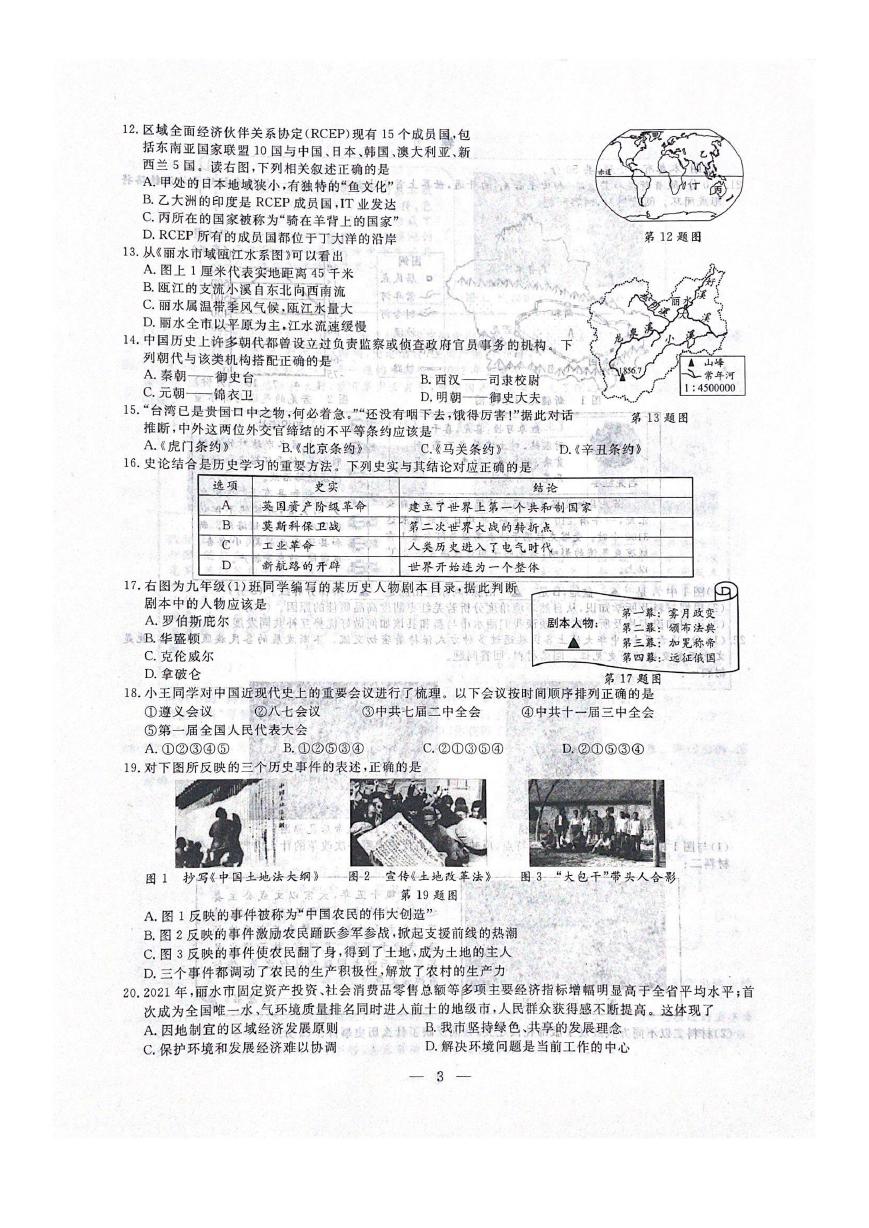 12. 区域全面经济伙伴关系协定(RCEP)现有 15 个成员国,包
括东南亚国家联盟 10 国与中国、日本、韩国、澳大利亚、新
西兰 5 国。读右图,下列相关叙述正确的是
A. 甲处的日本地域狭小,有独特的“鱼文化”
B. 乙大洲的印度是 RCEP 成员国,IT 业发达
C. 丙所在的国家被称为“骑在羊背上的国家”
D. RCEP 所有的成员国都位于丁大洋的沿岸
赤道
乙
甲
丁
丙
第 12 题图
13. 从《丽水市域瓯江水系图》可以看出
A. 图上 1 厘米代表实地距离 45 千米
B. 瓯江的支流小溪自东北向西南流
C. 丽水属温带季风气候,瓯江水量大
D. 丽水全市以平原为主,江水流速缓慢
好
溪
丽水
溪
龙泉溪
小溪
1856.7
▲ 山峰
常年河
1∶4500000
第 13 题图
14. 中国历史上许多朝代都曾设立过负责监察或侦查政府官员事务的机构。下
列朝代与该类机构搭配正确的是
A. 秦朝——御史台
B. 西汉——司隶校尉
C. 元朝——锦衣卫
D. 明朝——御史大夫
15. “台湾已是贵国口中之物,何必着急。”“还没有咽下去,饿得厉害!”据此对话
推断,中外这两位外交官缔结的不平等条约应该是
A.《虎门条约》 B.《北京条约》 C.《马关条约》 D.《辛丑条约》
16. 史论结合是历史学习的重要方法。下列史实与其结论对应正确的是
选项 史实 结论
A 英国资产阶级革命 建立了世界上第一个共和制国家
B 莫斯科保卫战 第二次世界大战的转折点
C 工业革命 人类历史进入了电气时代
D 新航路的开辟 世界开始连为一个整体
17. 右图为九年级(1)班同学编写的某历史人物剧本目录,据此判断
剧本中的人物应该是
A. 罗伯斯庇尔
B. 华盛顿
C. 克伦威尔
D. 拿破仑
剧本人物:
▲
第一幕:雾月政变
第二幕:颁布法典
第三幕:加冕称帝
第四幕:远征俄国
第 17 题图
18. 小王同学对中国近现代史上的重要会议进行了梳理。以下会议按时间顺序排列正确的是
①遵义会议 ②八七会议 ③中共七届二中全会 ④中共十一届三中全会
⑤第一届全国人民代表大会
A. ①②③④⑤ B. ①②⑤③④ C. ②①③⑤④ D. ②①⑤③④
19. 对下图所反映的三个历史事件的表述,正确的是
图 1 抄写《中国土地法大纲》 图 2 宣传《土地改革法》 图 3 “大包干”带头人合影
第 19 题图
A. 图 1 反映的事件被称为“中国农民的伟大创造”
B. 图 2 反映的事件激励农民踊跃参军参战,掀起支援前线的热潮
C. 图 3 反映的事件使农民翻了身,得到了土地,成为土地的主人
D. 三个事件都调动了农民的生产积极性,解放了农村的生产力
20. 2021 年,丽水市固定资产投资、社会消费品零售总额等多项主要经济指标增幅明显高于全省平均水平;首
次成为全国唯一水、气环境质量排名同时进入前十的地级市,人民群众获得感不断提高。这体现了
A. 因地制宜的区域经济发展原则 B. 我市坚持绿色、共享的发展理念
C. 保护环境和发展经济难以协调 D. 解决环境问题是当前工作的中心
— 3 —